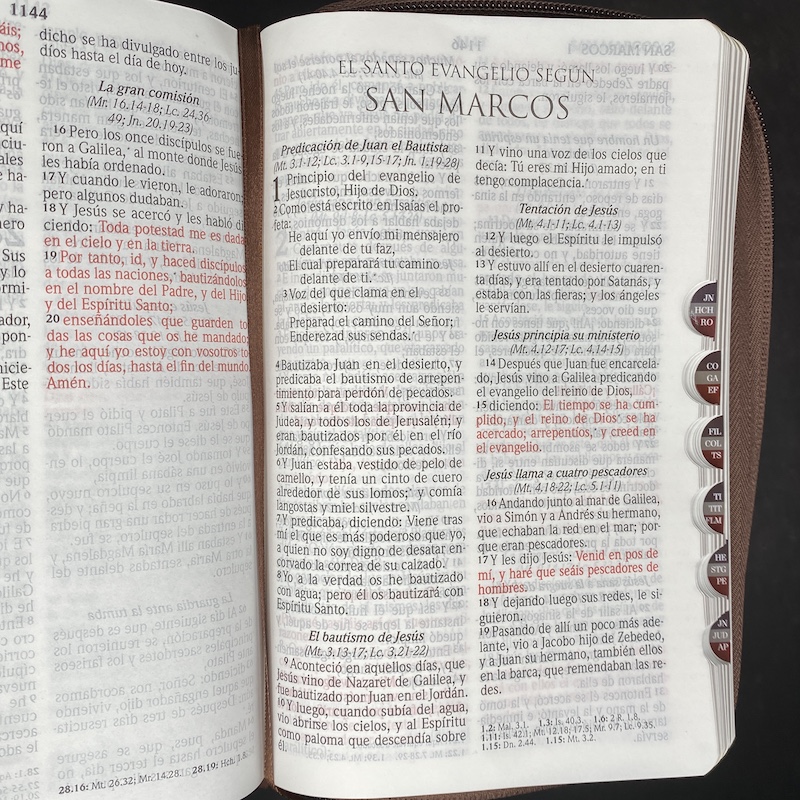 1144
áis;
nos,
me
quí
ciu-
ales
e ha-
y ha-
nero
Sus
y lo
ormi-
ador,
pon-
nicie-
Este
dicho se ha divulgado entre los ju-
díos hasta el día de hoy.
La gran comisión
(Mr. 16.14-18; Lc. 24.36-
49; Jn. 20.19-23)
16 Pero los once discípulos se fue-
ron a Galilea,* al monte donde Jesús
les había ordenado.
17 Y cuando le vieron, le adoraron;
pero algunos dudaban.
18 Y Jesús se acercó y les habló di-
ciendo: Toda potestad me es dada
en el cielo y en la tierra.
19 Por tanto, id, y haced discípulos
a todas las naciones,* bautizándolos
en el nombre del Padre, y del Hijo,
y del Espíritu Santo;
20 enseñándoles que guarden to-
das las cosas que os he mandado;
y he aquí yo estoy con vosotros to-
dos los días, hasta el fin del mundo.
Amén.
28.16: Mt. 26.32; Mr. 14.28. 28.19: Hch. 1.8.
EL SANTO EVANGELIO SEGÚN
SAN MARCOS
Predicación de Juan el Bautista
(Mt. 3.1-12; Lc. 3.1-9,15-17; Jn. 1.19-28)
1 Principio del evangelio de
Jesucristo, Hijo de Dios.
2 Como está escrito en Isaías el pro-
feta:
He aquí yo envío mi mensajero
delante de tu faz,
El cual preparará tu camino
delante de ti.*
3 Voz del que clama en el
desierto:
Preparad el camino del Señor;
Enderezad sus sendas.*
4 Bautizaba Juan en el desierto, y
predicaba el bautismo de arrepen-
timiento para perdón de pecados.
5 Y salían a él toda la provincia de
Judea, y todos los de Jerusalén; y
eran bautizados por él en el río
Jordán, confesando sus pecados.
6 Y Juan estaba vestido de pelo de
camello, y tenía un cinto de cuero
alrededor de sus lomos;* y comía
langostas y miel silvestre.
7 Y predicaba, diciendo: Viene tras
mí el que es más poderoso que yo,
a quien no soy digno de desatar en-
corvado la correa de su calzado.
8 Yo a la verdad os he bautizado
con agua; pero él os bautizará con
Espíritu Santo.
El bautismo de Jesús
(Mt. 3.13-17; Lc. 3.21-22)
9 Aconteció en aquellos días, que
Jesús vino de Nazaret de Galilea, y
fue bautizado por Juan en el Jordán.
10 Y luego, cuando subía del agua,
vio abrirse los cielos, y al Espíritu
como paloma que descendía sobre
él.
11 Y vino una voz de los cielos que
decía: Tú eres mi Hijo amado; en ti
tengo complacencia.*
Tentación de Jesús
(Mt. 4.1-11; Lc. 4.1-13)
12 Y luego el Espíritu le impulsó
al desierto.
13 Y estuvo allí en el desierto cuaren-
ta días, y era tentado por Satanás, y
estaba con las fieras; y los ángeles
le servían.
Jesús principia su ministerio
(Mt. 4.12-17; Lc. 4.14-15)
14 Después que Juan fue encarcela-
do, Jesús vino a Galilea predicando
el evangelio del reino de Dios,
15 diciendo: El tiempo se ha cum-
plido, y el reino de Dios* se ha
acercado; arrepentíos,* y creed en
el evangelio.
Jesús llama a cuatro pescadores
(Mt. 4.18-22; Lc. 5.1-11)
16 Andando junto al mar de Galilea,
vio a Simón y a Andrés su hermano,
que echaban la red en el mar; por-
que eran pescadores.
17 Y les dijo Jesús: Venid en pos de
mí, y haré que seáis pescadores de
hombres.
18 Y dejando luego sus redes, le si-
guieron.
19 Pasando de allí un poco más ade-
lante, vio a Jacobo hijo de Zebedeo,
y a Juan su hermano, también ellos
en la barca, que remendaban las re-
des.
1.2: Mal. 3.1. 1.3: Is. 40.3. 1.6: 2 R. 1.8.
1.11: Is. 42.1; Mt. 12.18; 17.5; Mr. 9.7; Lc. 9.35.
1.15: Dn. 2.44. 1.15: Mt. 3.2.
JN
HCH
RO
CO
GA
EF
FIL
COL
TS
TI
TIT
FLM
HE
STG
PE
JN
JUD
AP